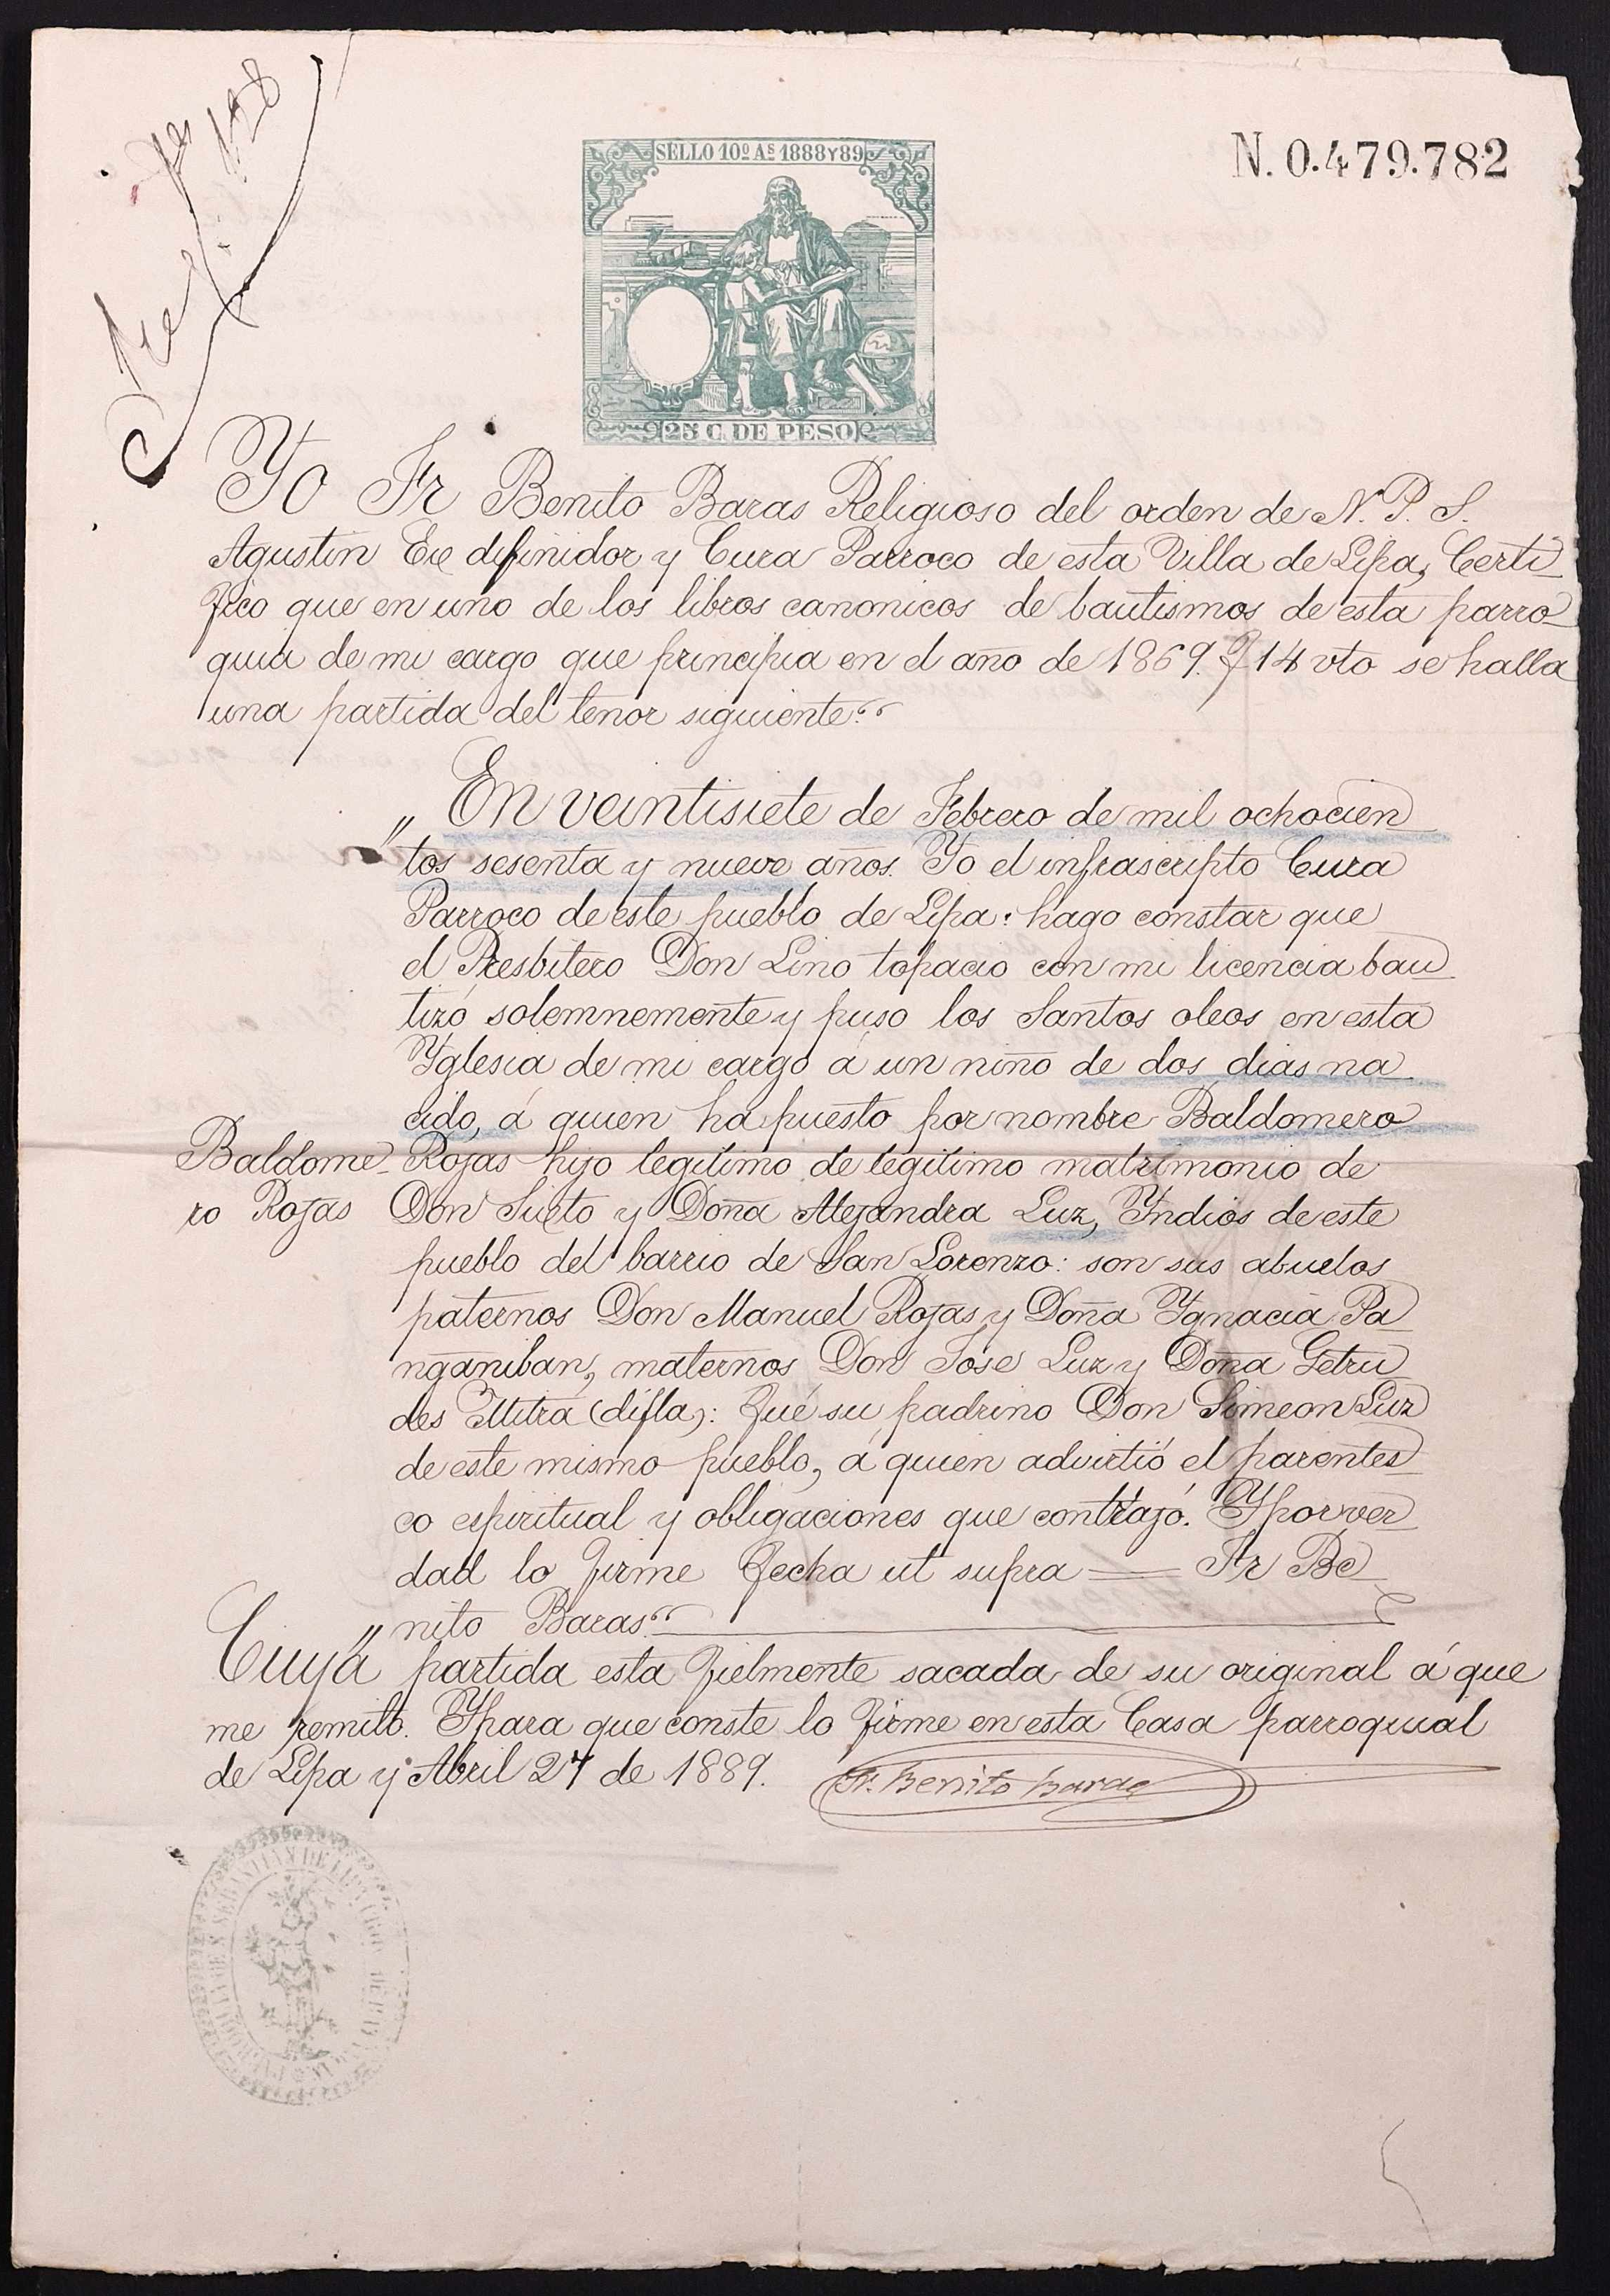 SELLO 10º As 1888 Y 89
N. 0.479.782
25 C. DE PESO
Yo Fr Benito Baras Religioso del orden de N. P. S.
Agustin Ex difinidor y Cura Parroco de esta Villa de Lipa, Certi
fico que en uno de los libros canonicos de bautismos de esta parro
quia de mi cargo que principia en el año de 1869. f 14 vto se halla
una partida del tenor siguiente."
" En veintisiete de Febrero de mil ochocien
" tos sesenta y nueve años. Yo el infrascripto Cura
Parroco de este pueblo de Lipa: hago constar que
el Presbitero Don Lino topacio con mi licencia bau
tizó solemnemente y puso los Santos oleos en esta
Yglesia de mi cargo á un niño de dos dias na
cido, á quien ha puesto por nombre Baldomero
Baldome Rojas hijo legitimo de legitimo matrimonio de
ro Rojas Don Sixto y Doña Alejandra Luz, Yndios de este
pueblo del barrio de San Lorenzo: son sus abuelos
paternos Don Manuel Rojas y Doña Ygnacia Pa
nganiban, maternos Don Jose Luz y Doña Getru
des Mitra (difta): Fué su padrino Don Simeon Luz
de este mismo pueblo, á quien advirtió el parentes
co espiritual y obligaciones que contrajó. Y por ver
dad lo firme fecha ut supra = Fr Be
" nito Baras."
Cuya partida esta fielmente sacada de su original á que
me remito. Y para que conste lo firme en esta Casa parroquial
de Lipa y Abril 27 de 1889. Fr. Benito Baras